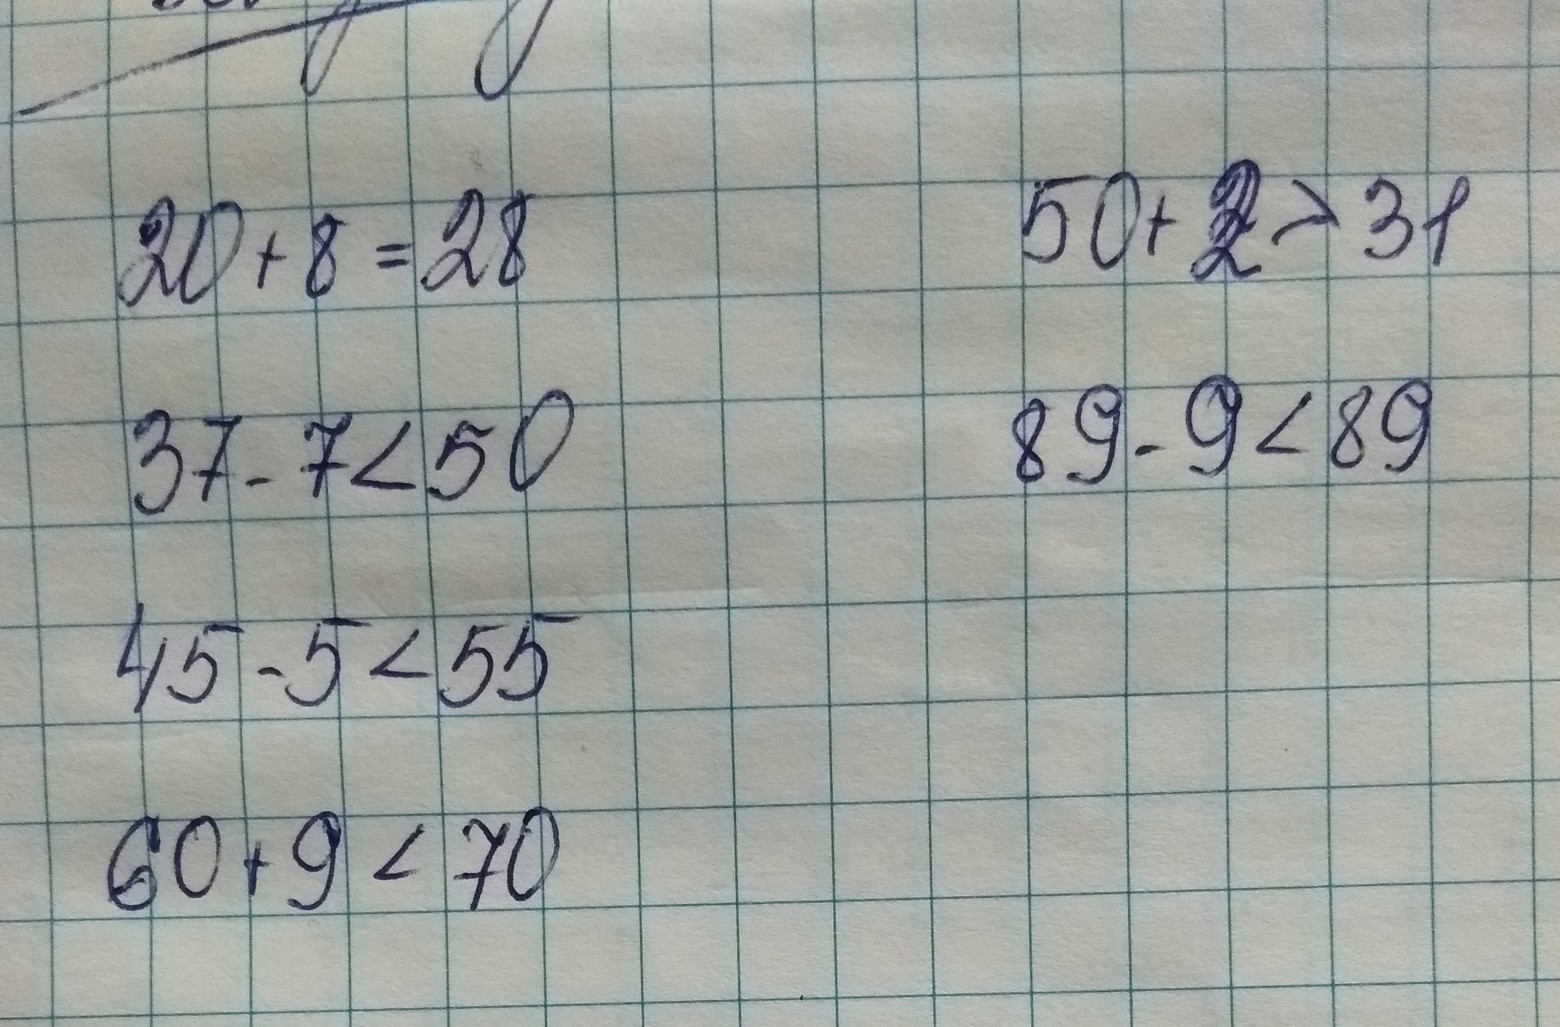 20+8=28
50+2>31
37-7<50
89-9<89
45-5<55
60+9<70